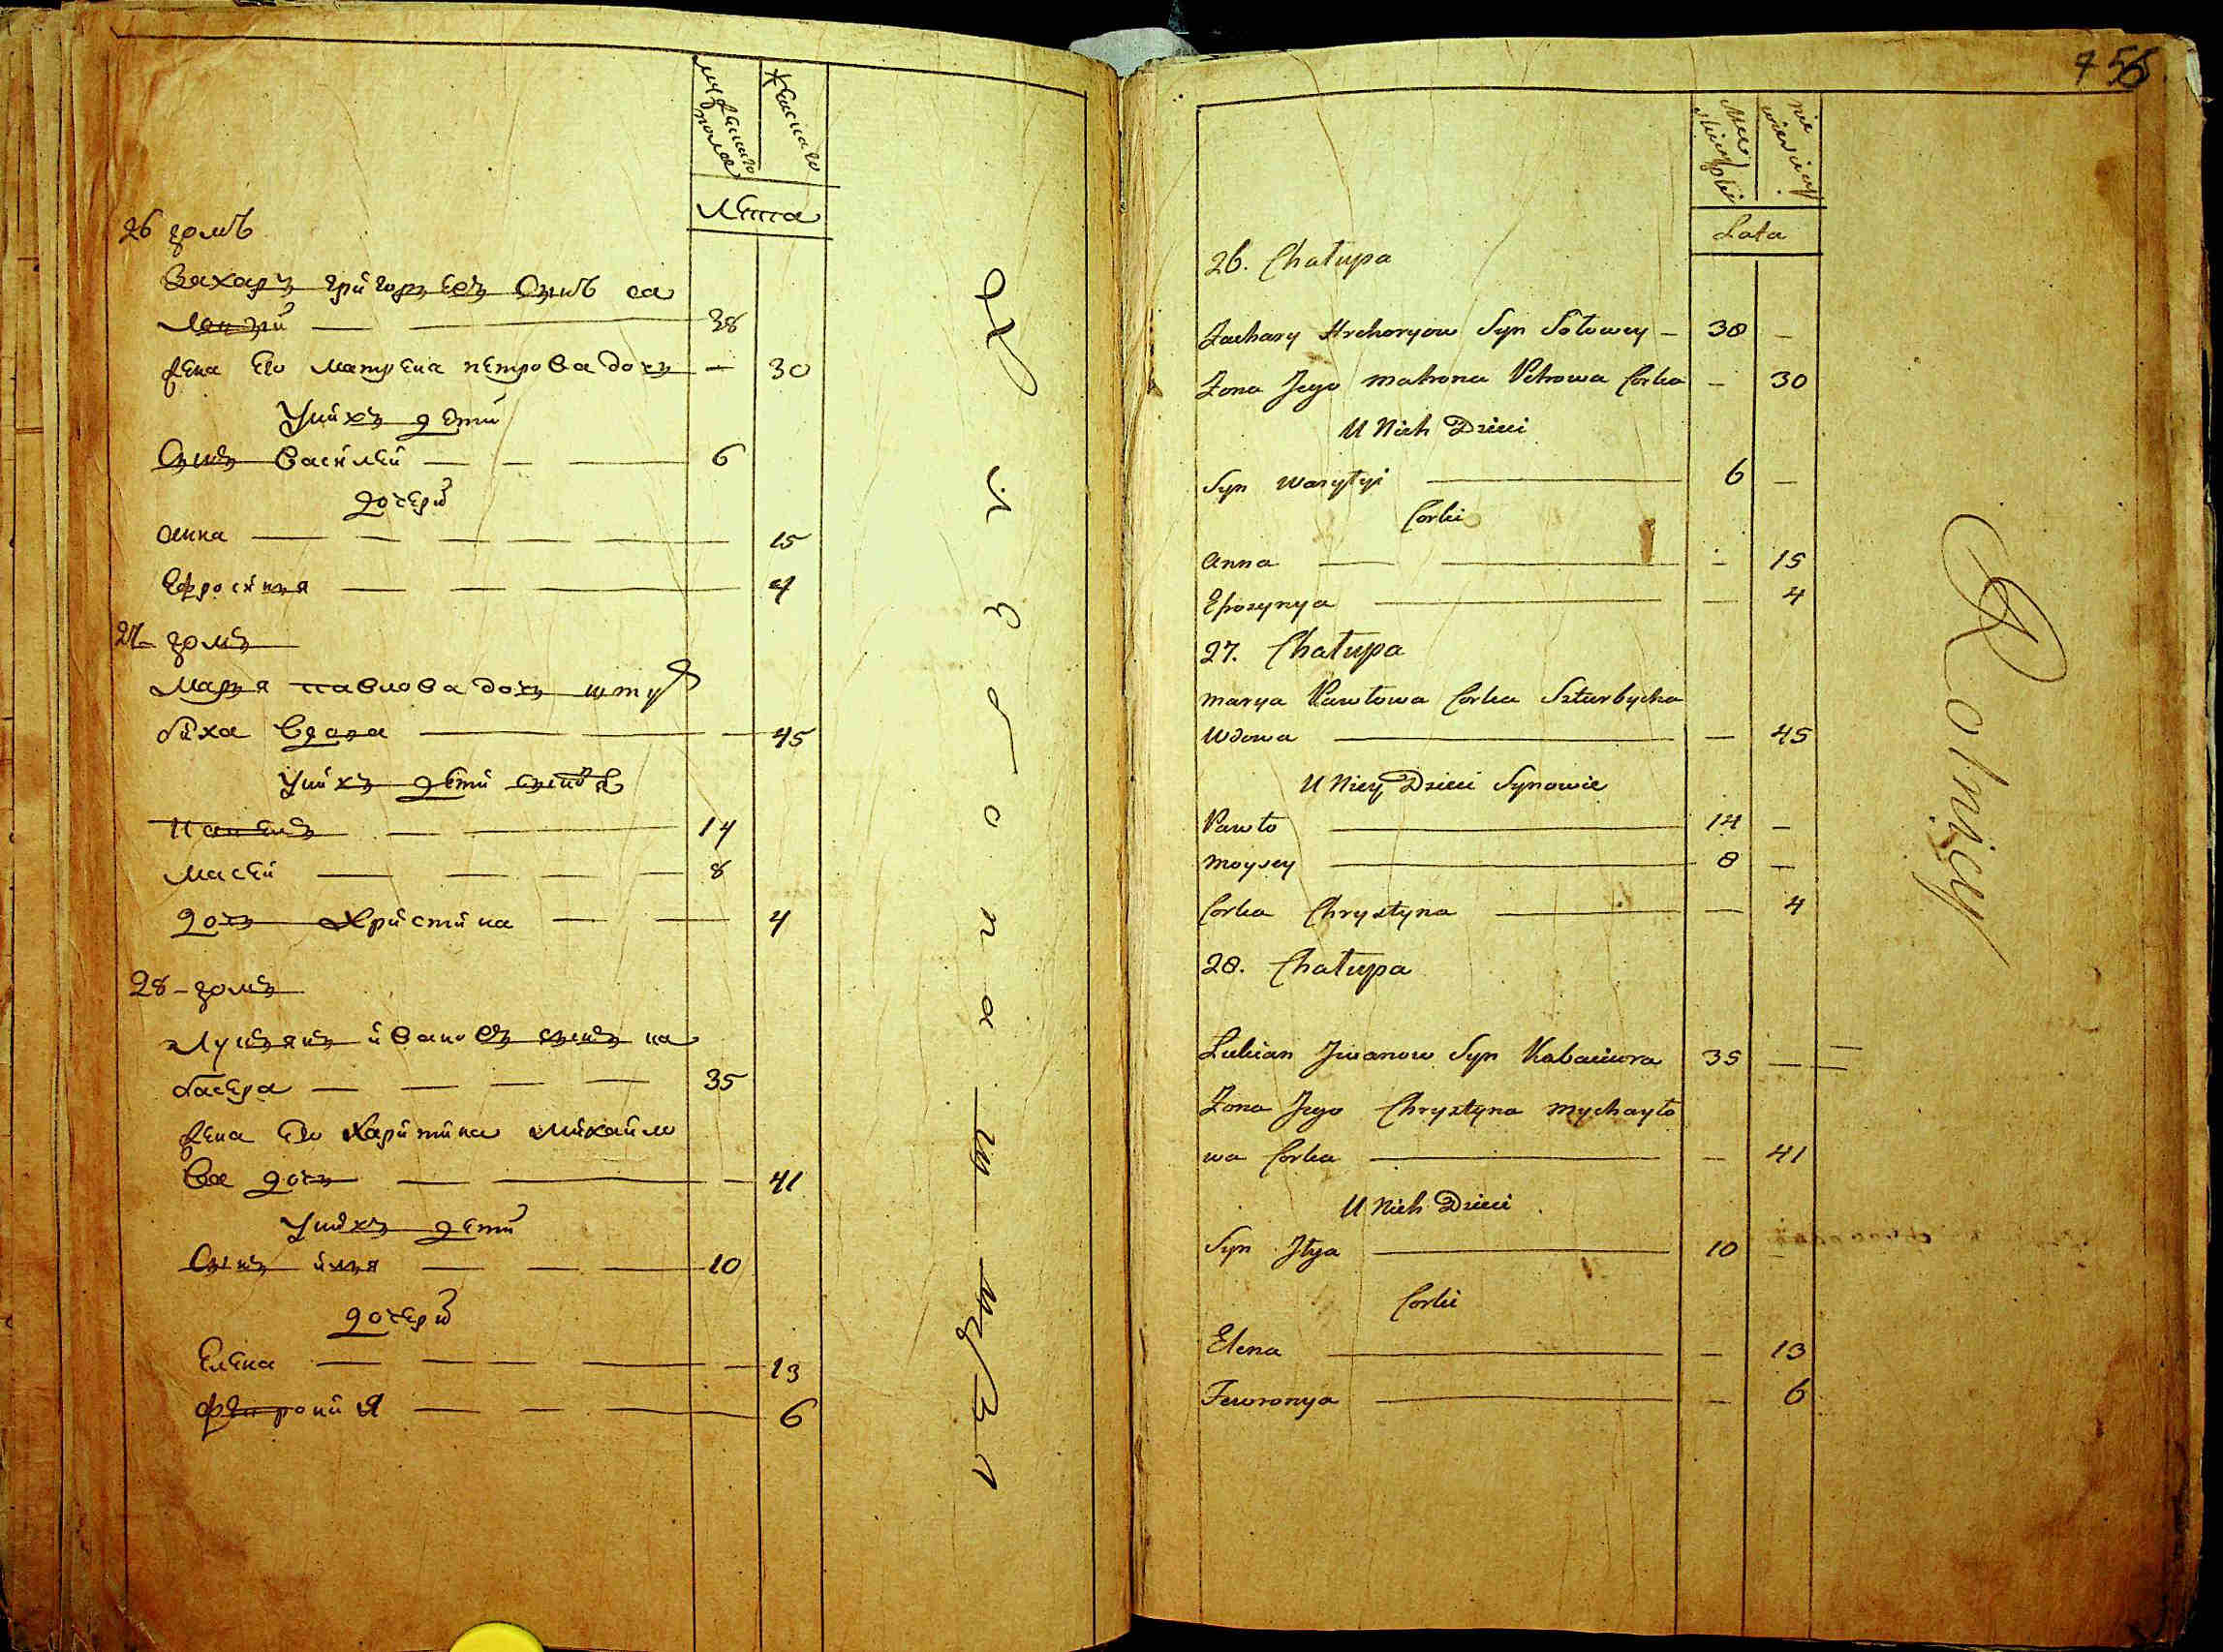 мужеска пола
женска
Лета
26 домъ
Захаръ григорьевъ Сынъ са
38
жена Его матрена петрова дочь — 30
Унихъ дети
Сынъ василей — 6
дочери
анна — 15
Ефросиния — 4
27 домъ
Марья павлова дочь шту
биха вдова — 45
Унихъ дети сыновя
14
масей — 8
дочь Христина — 4
28 домъ
Лукьянъ ивановъ сынъ ка
басера — 35
жена Его Харитина михайло
ва дочь — 41
Унихъ дети
Сынъ илья — 10
дочери
Елена — 13
6
755
Lata
26. Chałupa
Zachary Hrehoryow Syn Sołowey — 38 —
Zona Jego Matrona Petrowa Corka — 30
U Nich Dzieci
Syn Wasylyi — 6 —
Corki
Anna — 15
Eprosynya — 4
27. Chałupa
Marya Pawłowa Corka Szturbycha
Wdowa — 45
U Niey Dzieci Synowie
Pawło — 14 —
Moysey — 8 —
Corka Chrystyna — 4
28. Chałupa
Lukian Jwanow Syn Kabaciura 35 —
Zona Jego Chrystyna Mychayło
wa Corka — 41
U Nich Dzieci
Syn Jlya — 10 —
Corki
Elena — 13
Fewronya — 6
Rolnicy